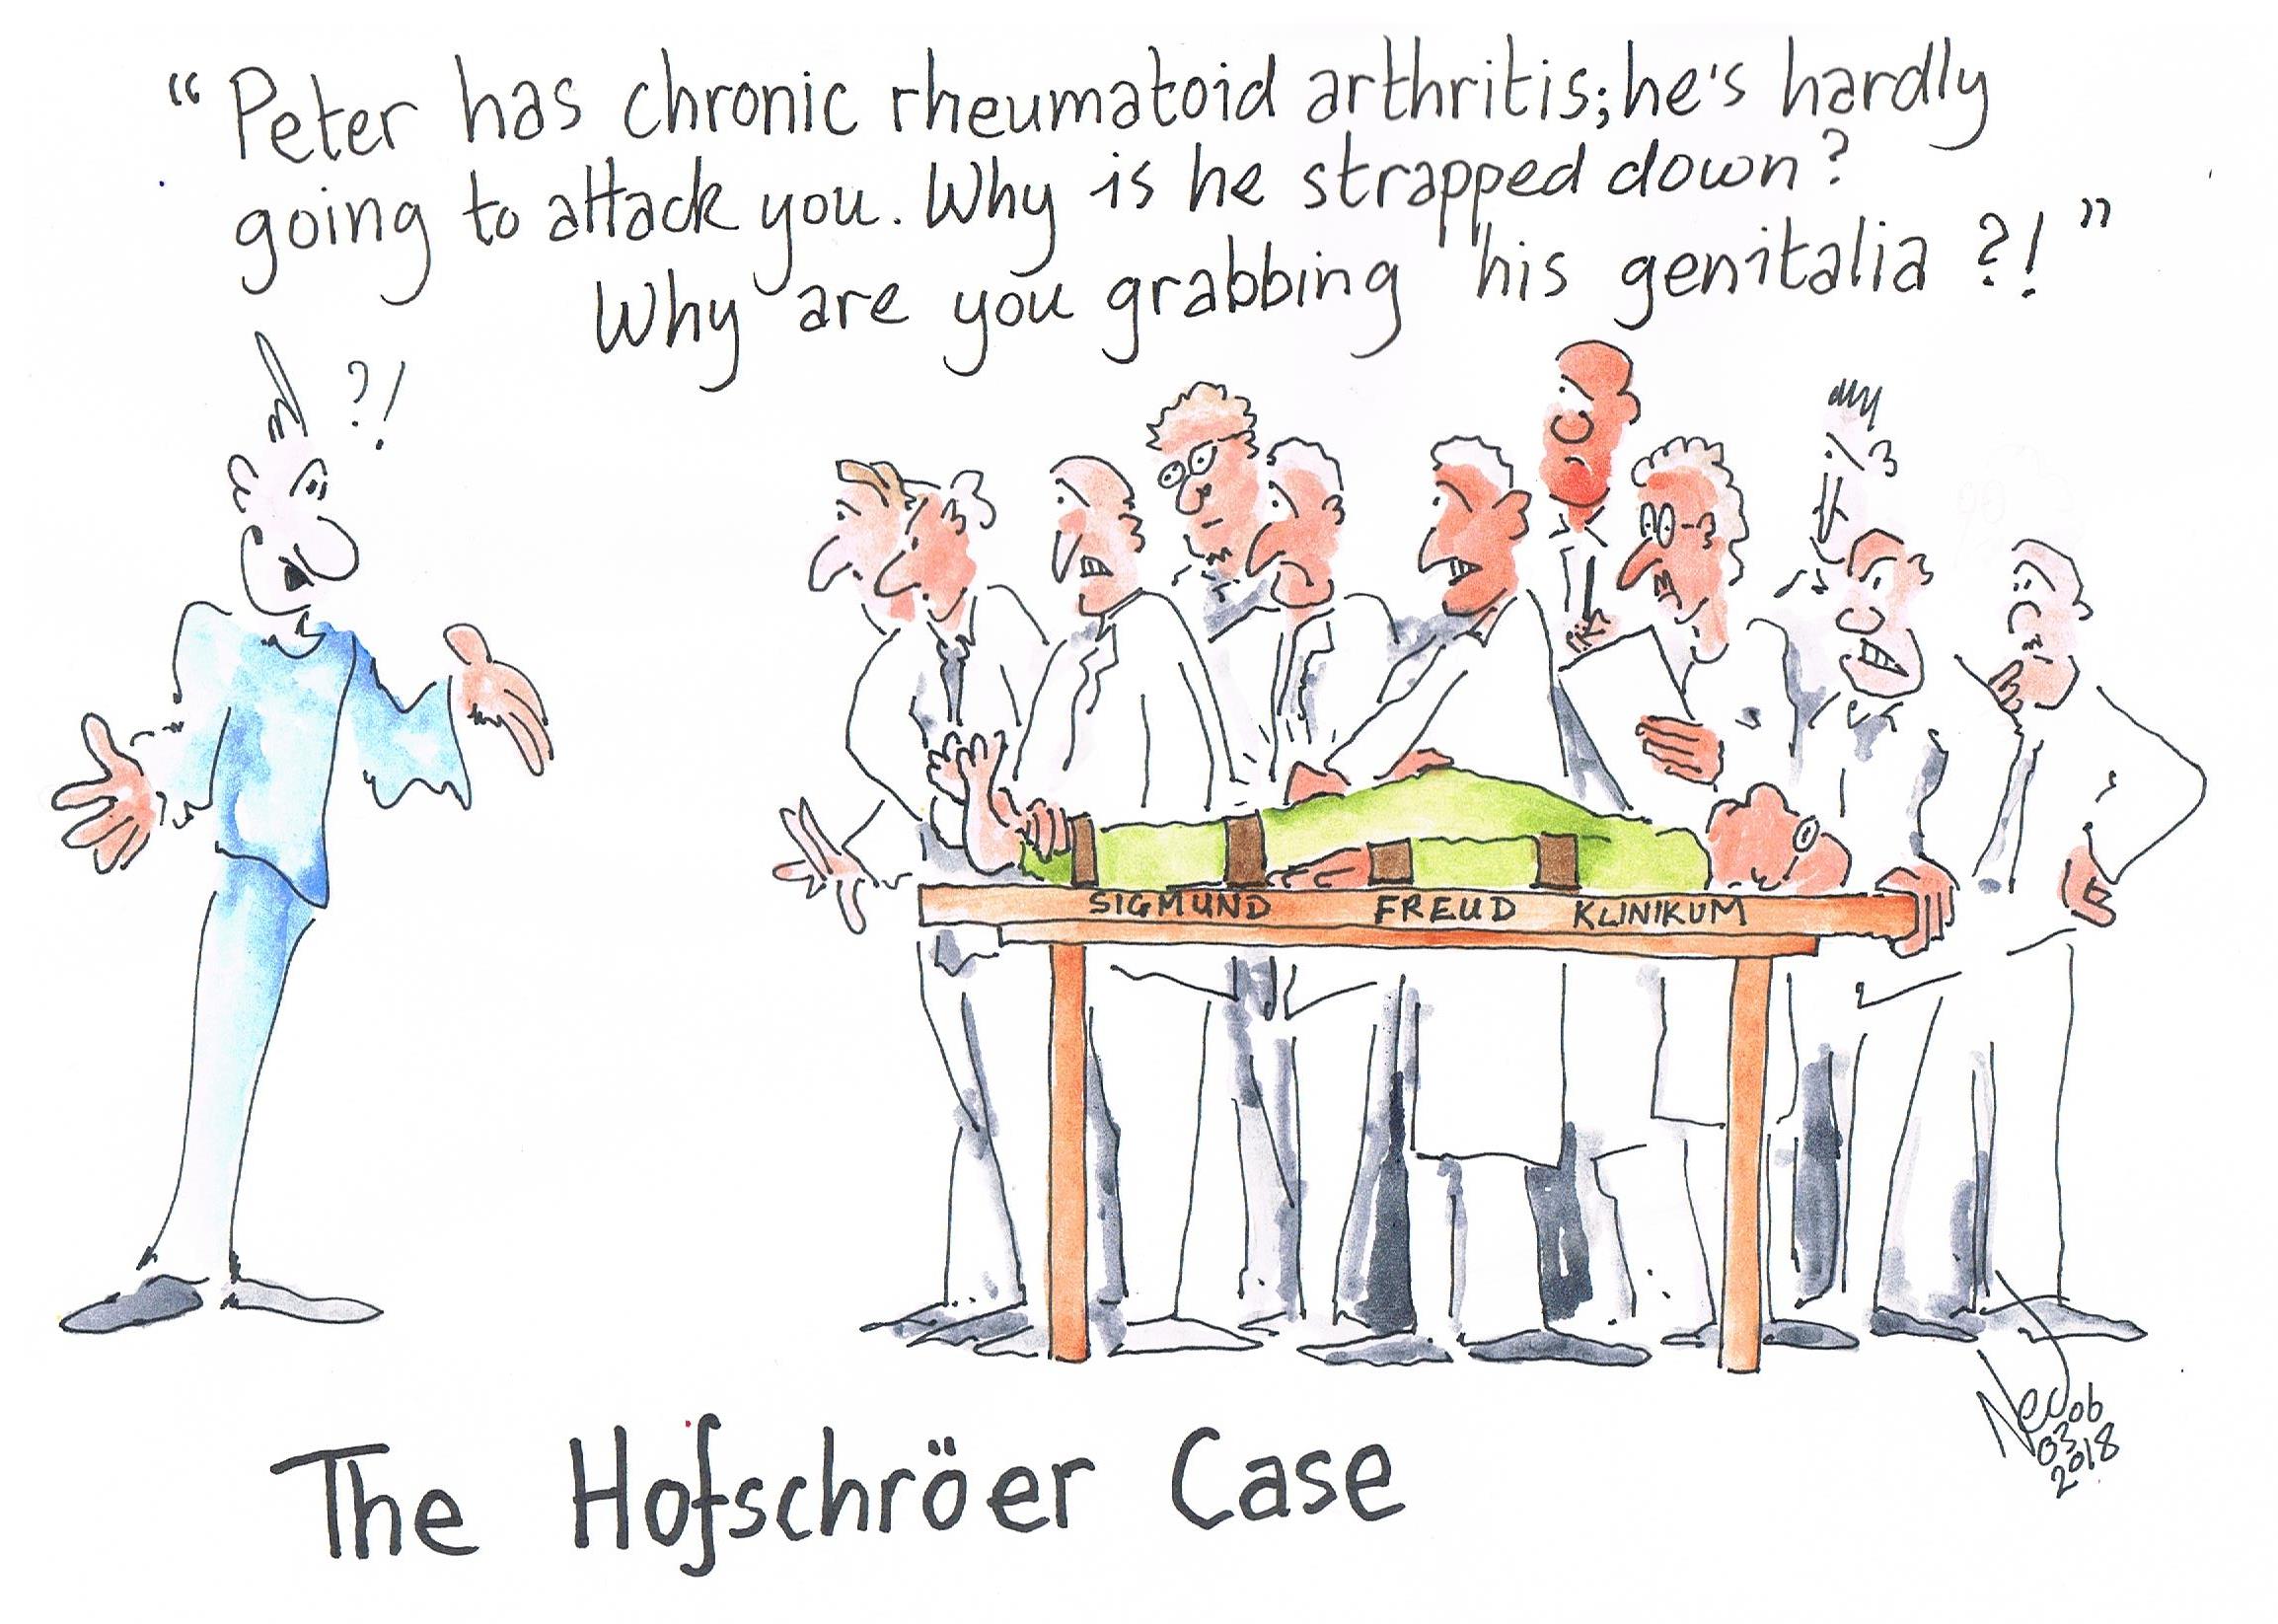 “Peter has chronic rheumatoid arthritis; he's hardly
going to attack you. Why is he strapped down?
Why are you grabbing his genitalia?!”
?!
SIGMUND FREUD KLINIKUM
The Hofschröer Case
03
2018